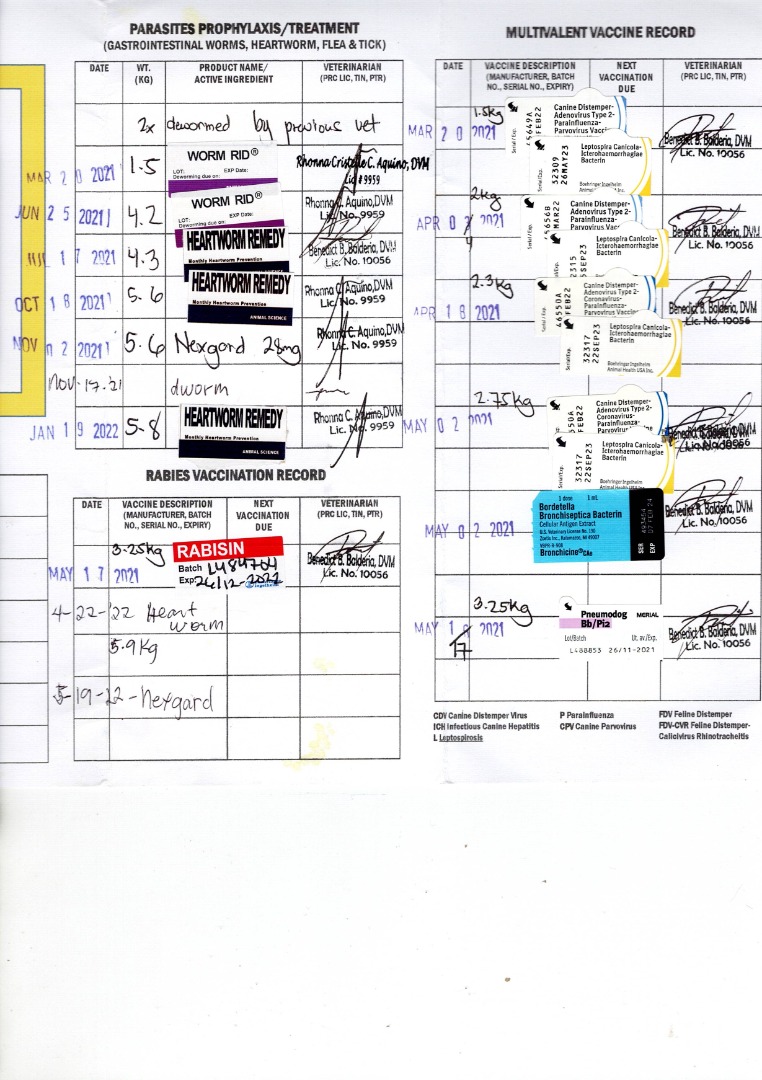 PARASITES PROPHYLAXIS/TREATMENT
(GASTROINTESTINAL WORMS, HEARTWORM, FLEA & TICK)
DATE WT. (KG) PRODUCT NAME/ ACTIVE INGREDIENT VETERINARIAN (PRC LIC, TIN, PTR)
2x dewormed by previous vet
MAR 20 2021 1.5 WORM RID® Rhonna Cristelle C. Aquino, DVM
LOT: EXP Date:
Deworming due on: Lic #9959
JUN 25 2021 4.2 WORM RID® Rhonna C. Aquino, DVM
LOT: EXP Date: Lic. No. 9959
Deworming due on:
17 2021 4.3 HEARTWORM REMEDY Benedict B. Balderia, DVM
Monthly Heartworm Prevention Lic. No. 10056
OCT 18 2021 5.6 HEARTWORM REMEDY Rhonna C. Aquino, DVM
Monthly Heartworm Prevention Lic. No. 9959
ANIMAL SCIENCE
NOV 02 2021 5.6 Nexgard 28mg Rhonna C. Aquino, DVM
Lic. No. 9959
Nov. 17. 21 dworm
JAN 19 2022 5.8 HEARTWORM REMEDY Rhonna C. Aquino, DVM
Monthly Heartworm Prevention Lic. No. 9959
ANIMAL SCIENCE
RABIES VACCINATION RECORD
DATE VACCINE DESCRIPTION (MANUFACTURER, BATCH NO., SERIAL NO., EXPIRY) NEXT VACCINATION DUE VETERINARIAN (PRC LIC, TIN, PTR)
3.25kg RABISIN
MAY 17 2021 Batch L484704 Benedict B. Balderia, DVM
Exp 26/12-2021 Lic. No. 10056
4-22-'22 Heart worm
5.9kg
5-19-22-Nexgard
MULTIVALENT VACCINE RECORD
DATE VACCINE DESCRIPTION (MANUFACTURER, BATCH NO., SERIAL NO., EXPIRY) NEXT VACCINATION DUE VETERINARIAN (PRC LIC, TIN, PTR)
1.5kg
MAR 20 2021
Canine Distemper-
Adenovirus Type 2-
Parainfluenza-
Parvovirus Vacci
FEB22
Benedict B. Balderia, DVM
Lic. No. 10056
Leptospira Canicola-
Icterohaemorrhagiae
Bacterin
32309
26MAY23
Boehringer Ingelheim
2kg
APR 0 2021
4
Canine Distemper-
Adenovirus Type 2-
Parainfluenza-
Parvovirus
MAR22
Benedict B. Balderia, DVM
Lic. No. 10056
Leptospira Canicola-
Icterohaemorrhagiae
Bacterin
2.3kg
APR 18 2021
Canine Distemper-
Adenovirus Type 2-
Coronavirus-
Parainfluenza-
Parvovirus Vaccine
46550A
FEB22
Benedict B. Balderia, DVM
Lic. No. 10056
Leptospira Canicola-
Icterohaemorrhagiae
Bacterin
32317
22SEP23
Boehringer Ingelheim
Animal Health USA Inc.
2.75kg
MAY 02 2021
Canine Distemper-
Adenovirus Type 2-
Coronavirus-
Parainfluenza-
Parvovirus
FEB22
Benedict B. Balderia, DVM
Leptospira Canicola-
Icterohaemorrhagiae
Bacterin
32317
22SEP23
Boehringer Ingelheim
Animal Health USA Inc.
MAY 02 2021
1 dose 1 mL
Bordetella
Bronchiseptica Bacterin
Cellular Antigen Extract
Bronchicine® CAe
SER
EXP
Benedict B. Balderia, DVM
Lic. No. 10056
3.25kg
MAY 1 2021
17
Pneumodog MERIAL
Bb/Pi2
Lot/Batch Ut. av./Exp.
L488853 26/11-2021
Benedict B. Balderia, DVM
Lic. No. 10056
CDV Canine Distemper Virus P Parainfluenza FDV Feline Distemper
ICH Infectious Canine Hepatitis CPV Canine Parvovirus FDV-CVR Feline Distemper-
L Leptospirosis Calicivirus Rhinotracheitis